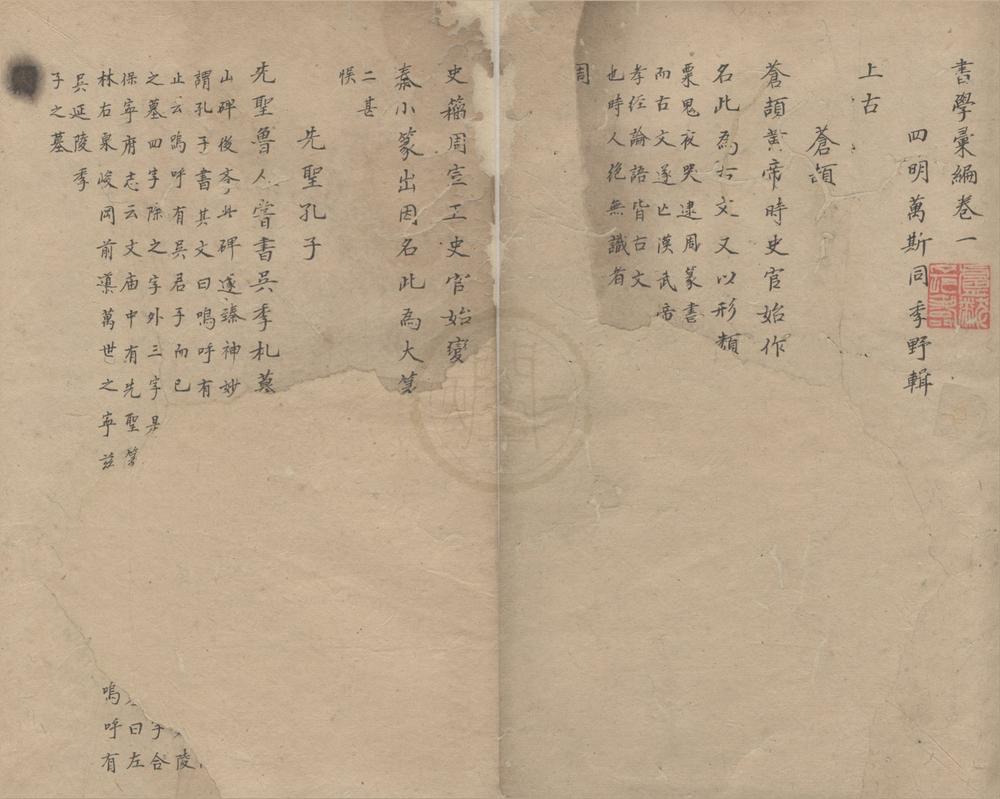 書學彙編卷一
四明萬斯同季野輯
上古
蒼頡
蒼頡黄帝時史官始作
名此為古文又以形類
粟鬼夜哭逮周篆書
而古文遂亡漢武帝
孝經論語皆古文
也時人絶無識者
周
史籀周宣王史官始變
秦小篆出因名此為大篆
二甚
悮
先聖孔子
先聖魯人嘗書吳季札墓
山碑後
謂孔子書其文曰嗚呼有
止云嗚呼有吳君子而已
之墓四字除之字外三字是
保寧府志云文庙中有先聖篆
林右泉峻岡前瀵萬世之寧兹
吳延陵季
子之墓
陵
子合
曰左
嗚呼有